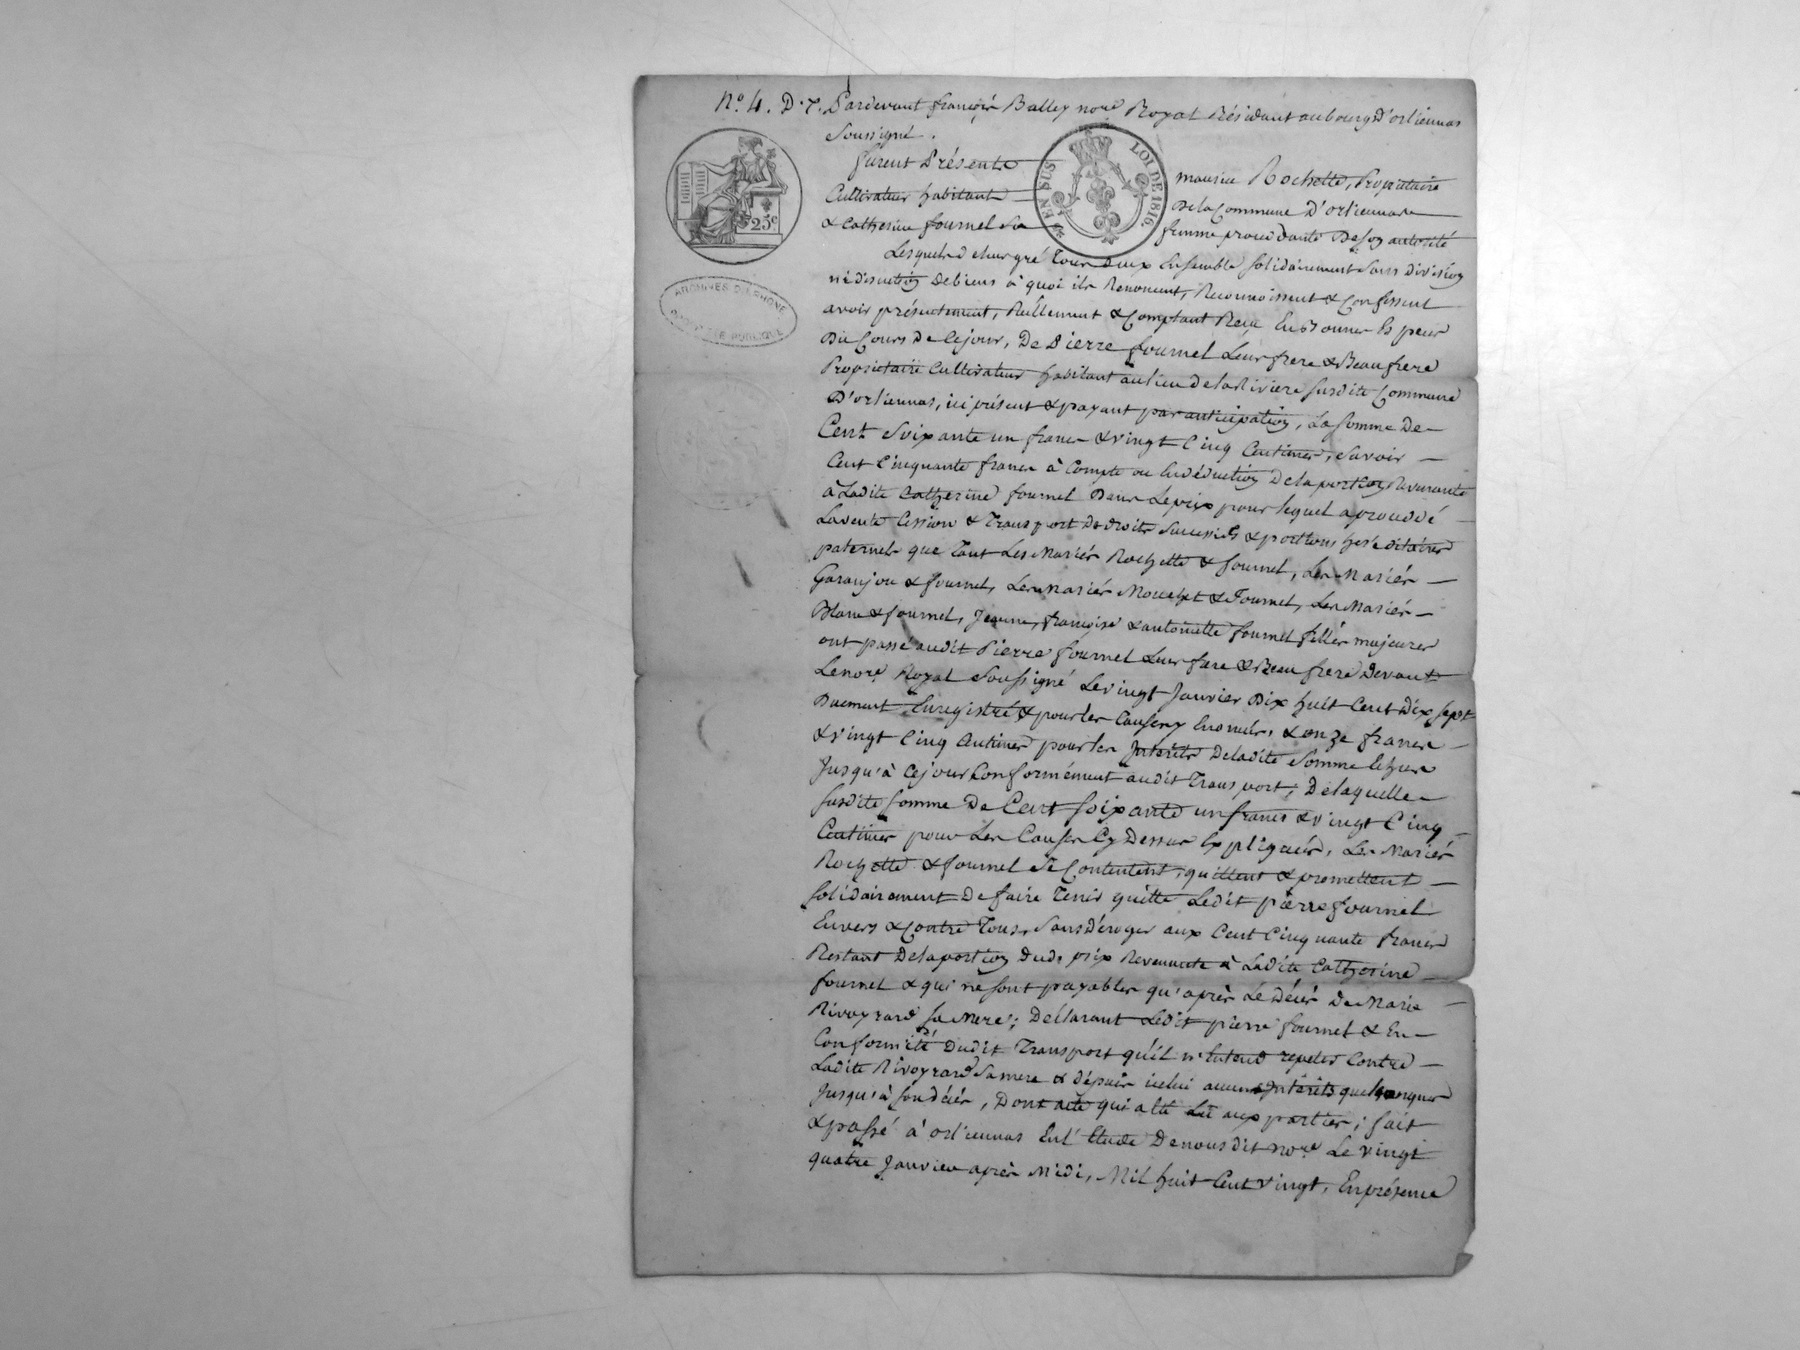 N.o 4. D.7. Pardevant françois Balley nore Royal Résidant au bourg D'orliennas
Soussigné.
furent Présents maurice Rochette, Propriétaire
Cultivateur habitant De la Commune D'orliennas
& Catherine fournel Sa femme procédante De son autorité
EN SUS
LOI DE 1816.
25c
ARCHIVES DU RHONE
Lesquels de leur gré Tous deux Ensemble solidairement sans division
ni discution de biens à quoi ils Renoncent, Reconnoissent & Confessent
avoir présentement, Réellement & Comptant Reçu En bonnes Especes
Du Cours De Cejour, De Pierre fournel Leur frere & Beaufrere
Propriétaire Cultivateur habitant au lieu de la Riviere susdite Commune
D'orliennas, ici présent & payant par anticipation, La somme De
Cent Soixante un francs & vingt Cinq Centimes, Savoir
Cent Cinquante francs à Compte ou En déduction De la portion Revenante
à Ladite Catherine fournel Dans Le prix pour lequel a procédé
La vente Cession & Transport De droits Successifs & portions héréditaires
paternels que Tant Les Mariés Rochette & fournel, Les Mariés
Garanjou & fournel, Les mariés Mouchet & Fournel, Les Mariés
Blanc & fournel, Jeanne, françoise & antoinette fournel filles majeures
ont passé audit Pierre fournel Leur frere & Beau frere Devant
Le nore Royal Soussigné Le vingt Janvier Dix huit Cent Dix sept
Duement Enregistré & pour les Causes y Enoncées, & onze francs
& vingt Cinq Centimes pour les Intérêts De ladite Somme Echus
Jusqu'à Cejour Conformément audit Transport; De laquelle
susdite somme De Cent soixante un francs & vingt Cinq
Centimes pour Les Causes Cy Dessus Expliquées, Les Mariés
Rochette & fournel Se Contentent, quittent & promettent
solidairement De faire Tenir quitte Ledit pierre fournel
Envers & Contre Tous, Sans Déroger aux Cent Cinquante francs
Restant De la portion dud. prix Revenante à Ladite Catherine
fournel & qui ne sont payables qu'après Le Décès De Marie
Rivoyrard sa Mere; Déclarant Ledit pierre fournel & En
Conformité Dudit Transport qu'il n'Entend repeter Contre
Ladite Rivoyrard Sa mere & dépuis icelui aucuns Intérêts quelquonques
Jusqu'à son décès, Dont acte qui a été Lu aux parties; fait
& passé à orliennas En l'Etude De nous dit nore Le vingt
quatre Janvier après Midi, Mil huit Cent vingt, En présence